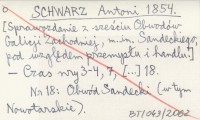 SCHWARZ Antoni 1854.
[Sprawozdanie z sześciu Obwodów
Galicji Zachodniej, m.in. Sandeckiego,
pod względem przemysłu i handlu]
- Czas nry 3-4, 7, [...] 18.
Nr 18: Obwód Sandecki (w tym
Nowotarskie).
BT/063/2002